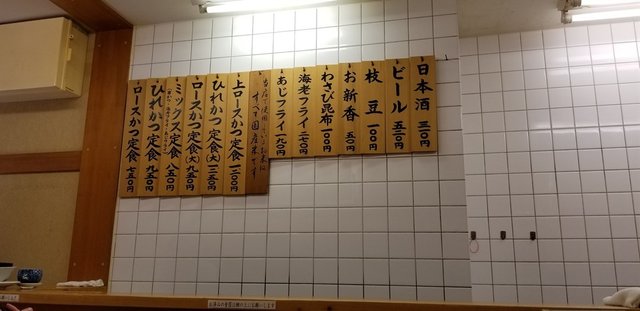 日本酒 三〇〇円
ビール 五五〇円
枝豆 一〇〇円
お新香 五〇円
わさび昆布 一〇〇円
海老フライ 二七〇円
あじフライ 一九〇円
当店で使用しているお米は
すべて国産米です
上ロースかつ定食 一二〇〇円
ひれかつ定食(大) 一二五〇円
ロースかつ定食(大) 九五〇円
ミックス定食 八五〇円
ひれかつ定食 九五〇円
ロースかつ定食 七五〇円